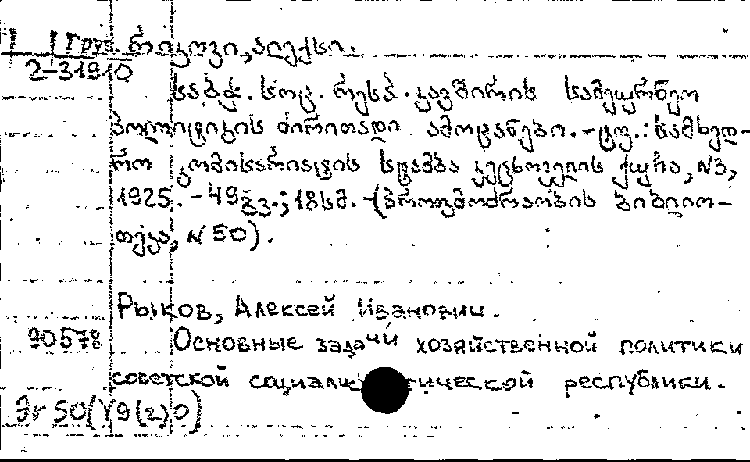 Груз. რიკოვი, ალექსი.
2-31910
საბჭ. სოც. რესპ. კავშირის სამეურნეო
პოლიტიკის ძირითადი ამოცანები. - ტფ.: სამხედ-
რო კომისარიატის სტამბა კეცხოველის ქუჩა, N3,
1925. - 49გვ.; 18სმ. - (პროფმოძრაობის ბიბლიო-
თეკა, N 50).
Рыков, Алексей Иванович.
90578 Основные задачи хозяйственной политики
советской социалистической республики.
Эг 50(У9(2)0)